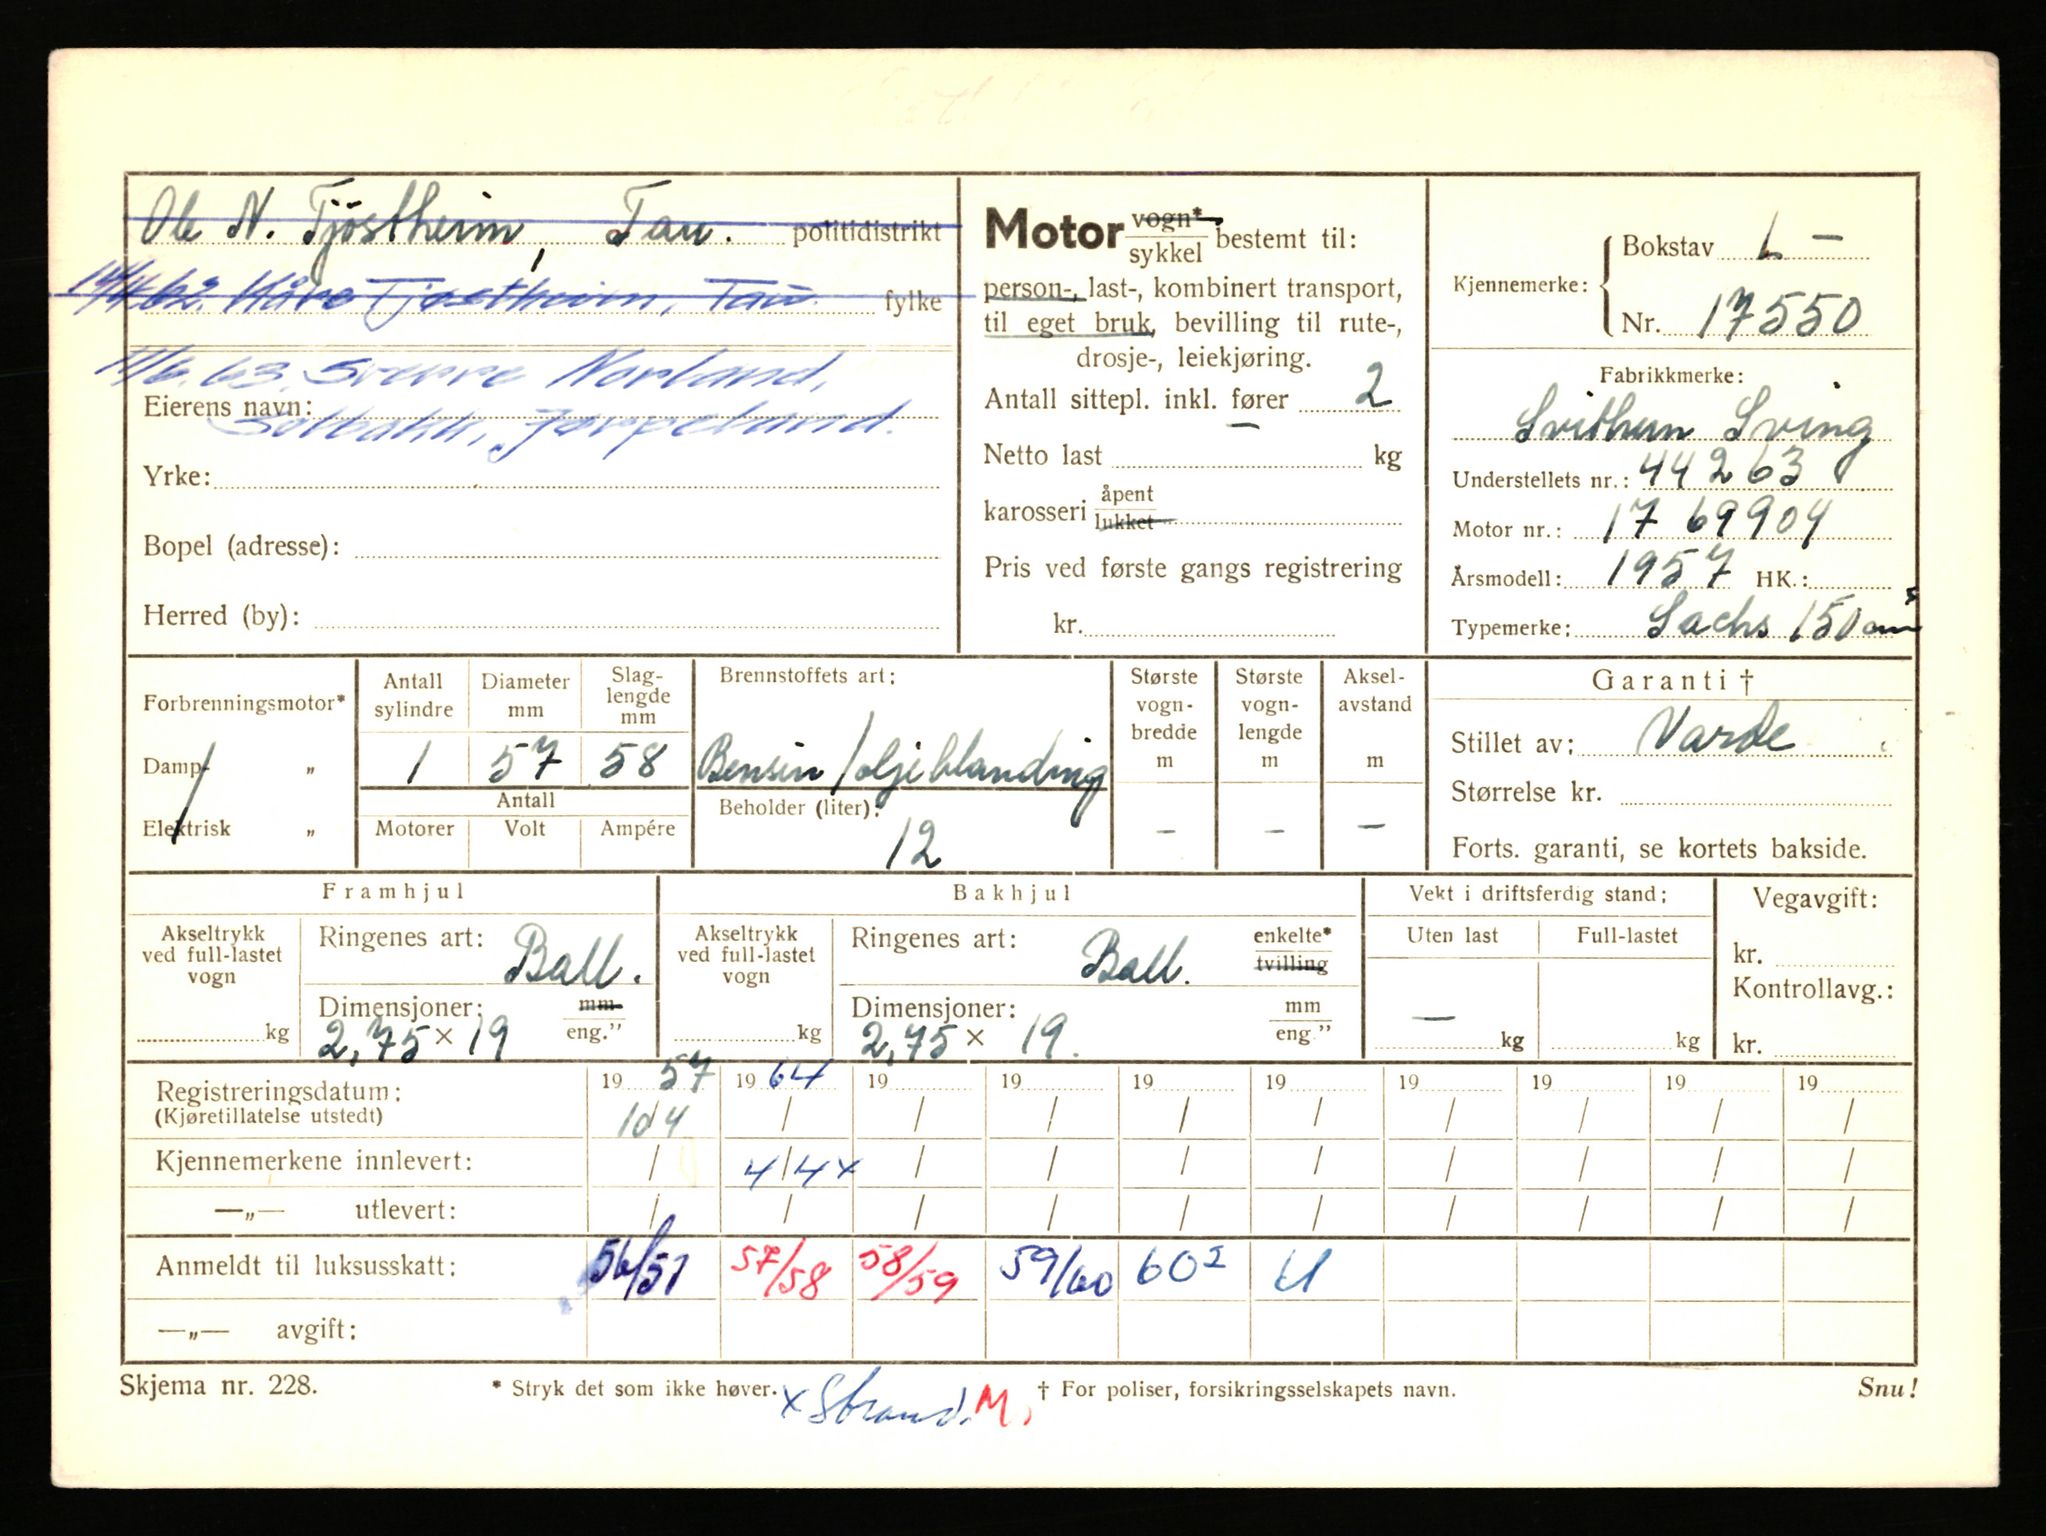 Ole N. Tjöstheim, Tau. politidistrikt
14/4.62. Kåre Tjøstheim, Tau. fylke
11/6.63. Sverre Norland,
Eierens navn: Solbakk, Jørpeland.
Yrke:
Bopel (adresse):
Herred (by):
Motor vogn* / sykkel bestemt til:
person-, last-, kombinert transport,
til eget bruk, bevilling til rute-,
drosje-, leiekjøring.
Antall sittepl. inkl. fører 2
Netto last — kg
karosseri åpent / lukket
Pris ved første gangs registrering
kr.
Kjennemerke: Bokstav L —
Nr. 17550
Fabrikkmerke:
Svithun Sving
Understellets nr.: 44263
Motor nr.: 1769904
Årsmodell: 1957 HK.:
Typemerke: Sachs 150 cm³
Forbrenningsmotor*
Damp- „
Elektrisk „
Antall sylindre 1
Diameter mm 57
Slag-lengde mm 58
Antall
Motorer Volt Ampére
Brennstoffets art:
Bensin/oljeblanding
Beholder (liter):
12
Største vogn-bredde m —
Største vogn-lengde m —
Aksel-avstand m —
Garanti †
Stillet av: Varde
Størrelse kr.
Forts. garanti, se kortets bakside.
Framhjul
Akseltrykk ved full-lastet vogn kg
Ringenes art: Ball.
Dimensjoner: mm / eng.”
2,75 × 19
Bakhjul
Akseltrykk ved full-lastet vogn kg
Ringenes art: Ball. enkelte* / tvilling
Dimensjoner: mm / eng.”
2,75 × 19.
Vekt i driftsferdig stand:
Uten last Full-lastet
— kg kg
Vegavgift:
kr.
Kontrollavg.:
kr.
Registreringsdatum: 19 57 19 64 19 19 19 19 19 19 19 19
(Kjøretillatelse utstedt) 10/4 / / / / / / / / /
Kjennemerkene innlevert: / 4/4 x / / / / / / / /
—„— utlevert: / / / / / / / / / /
Anmeldt til luksusskatt: 56/57 57/58 58/59 59/60 60² U
—„— avgift:
Skjema nr. 228. * Stryk det som ikke høver. x Strand. M. † For poliser, forsikringsselskapets navn. Snu!